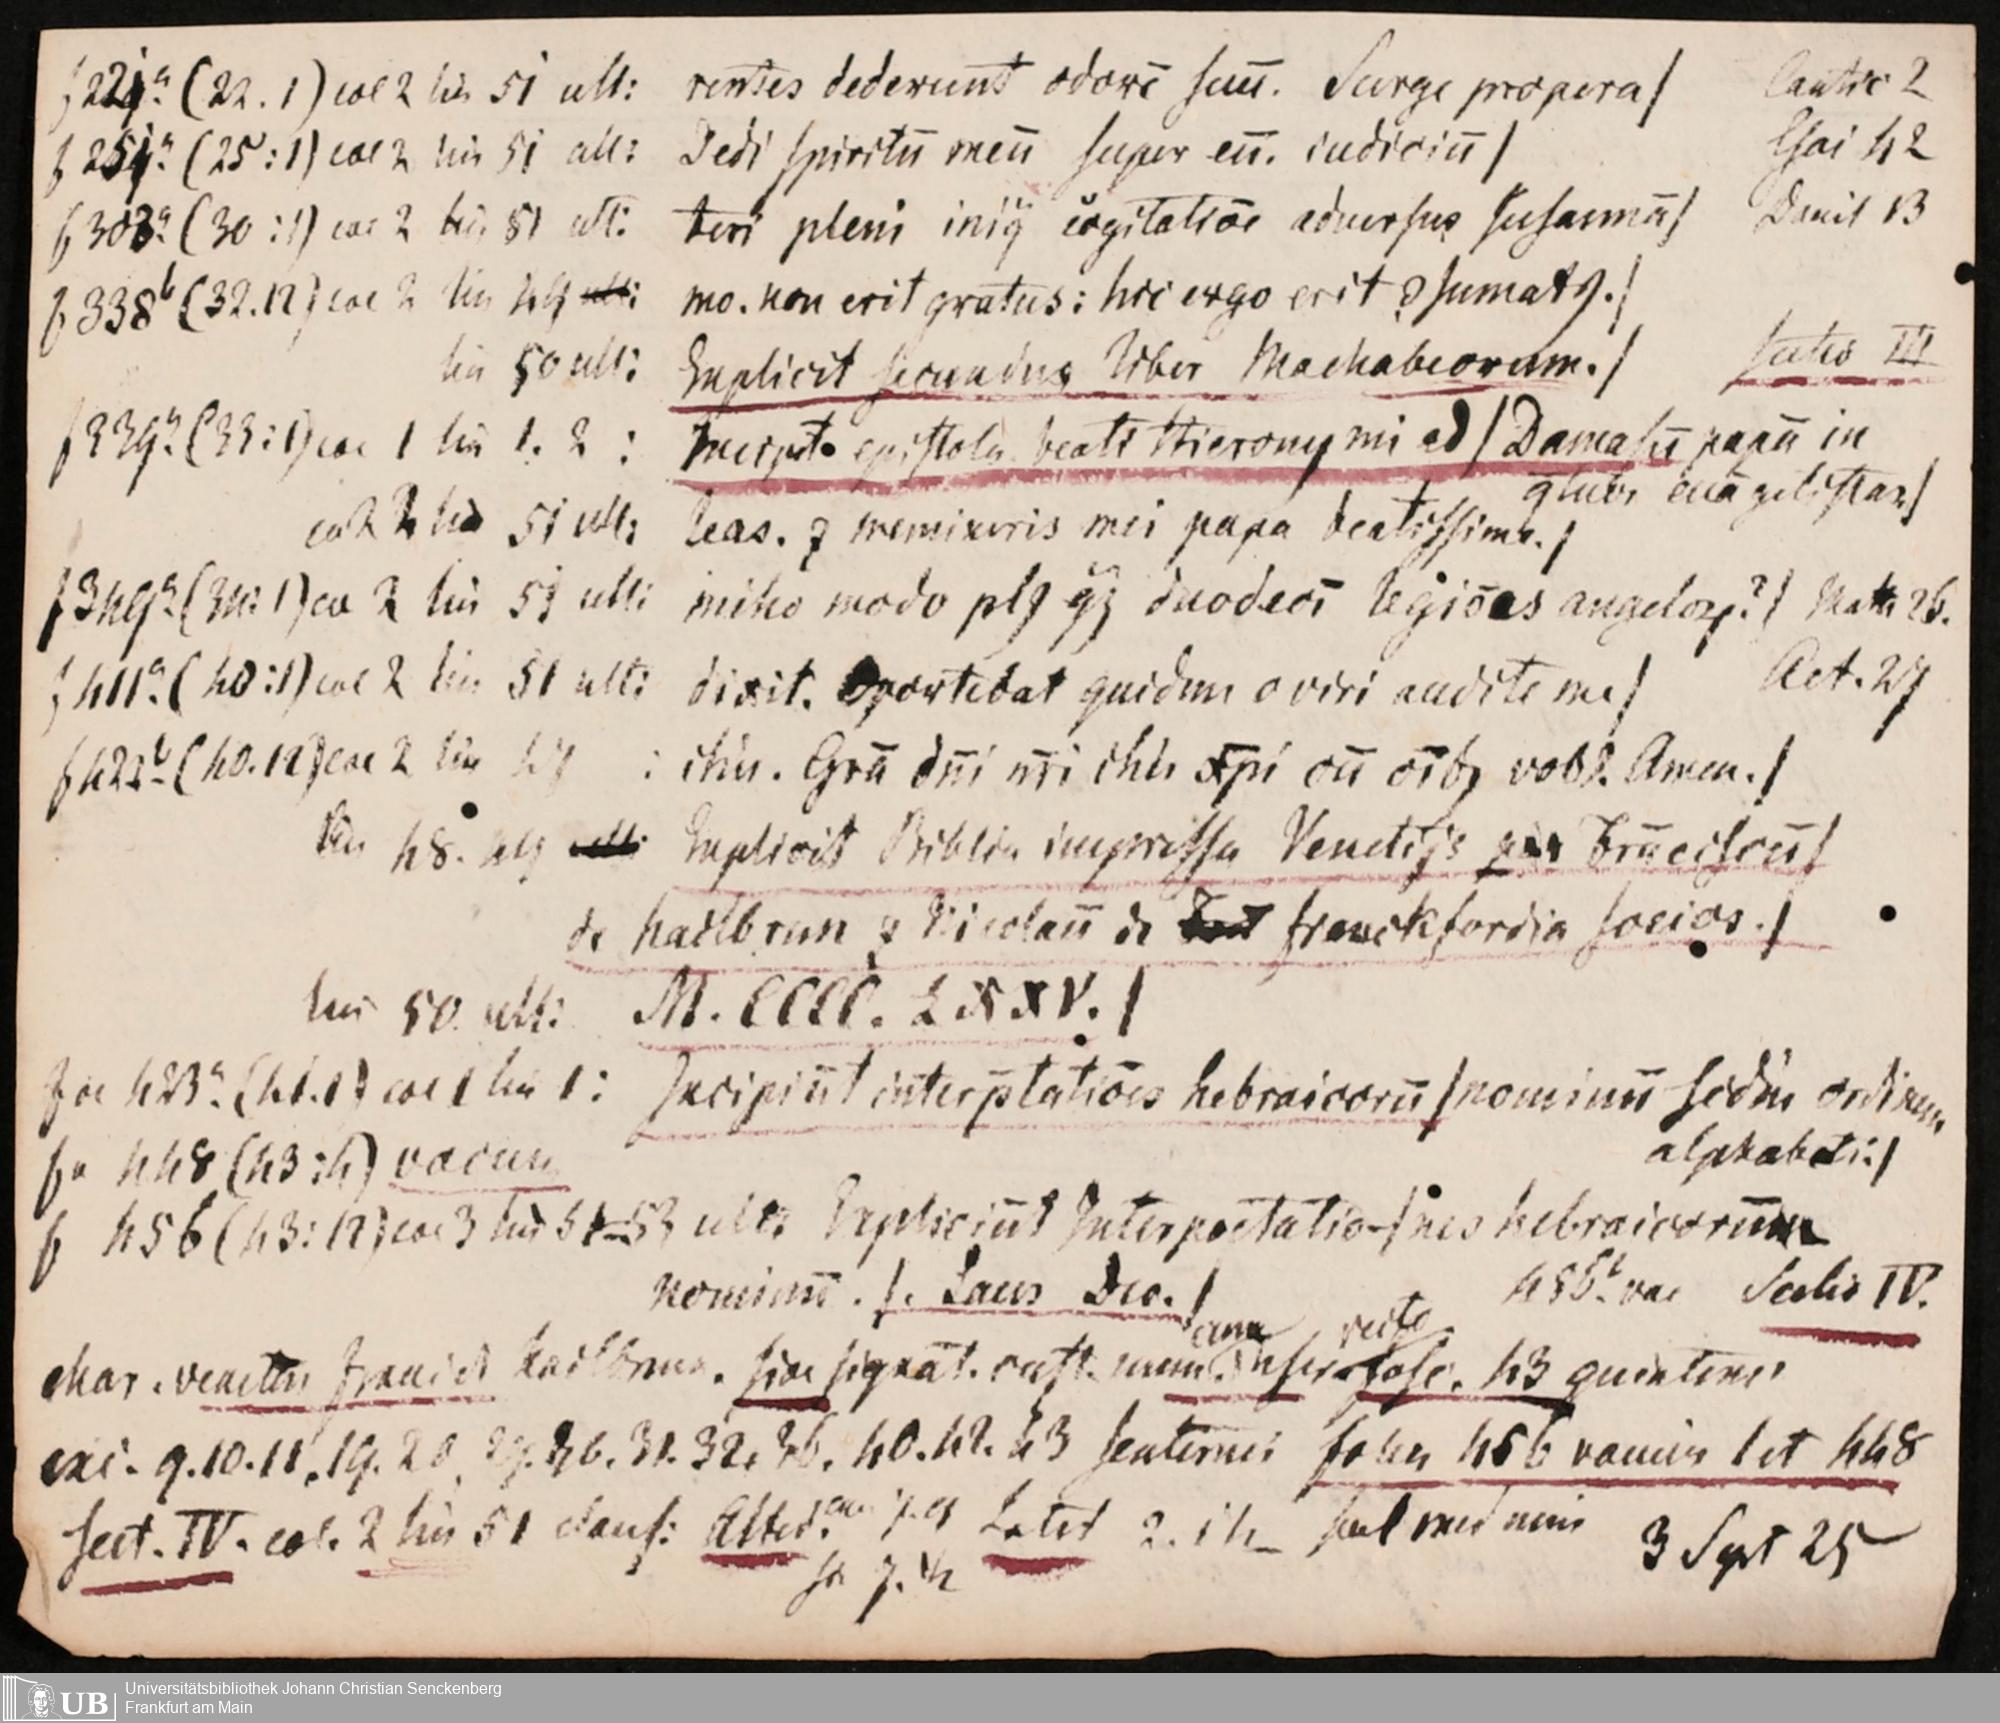 f 221ª. (22. 1) col 2 lin 51 ult: rentes dederunt odorē suū. Surge propera/ Cantic 2
f 251ª. (25:1) col 2 lin 51 ult: Dedi spiritū meū super eū. iudiciū/ Esai 42
f 303ª. (30:1) col 2 lin 51 ult: teri pleni iniq̄ cogitatiōe aduersus susannā/ Daniel 13
f 338ᵇ (32.12) col 2 lin 49 mo. non erit gratus: hic ergo erit ꝯsumatꝰ./
lin 50 ult: Explicit secundus liber Machabeorum./ sectio III
f 339ª. (33:1) col 1 lin 1. 2 : Incipit epistola beati Hieronymi ad/Damasū papā in
qtuor euāgelistas/
col 2 lin 51 ult: leas. ⁊ memineris mei papa beatissime./
f 349ª. (34:1) col 2 lin 51 ult: mihi modo plꝰ qꝫ duodeci legiões angeloꝝ?/ Matth 26.
f 411ª. (40:1) col 2 lin 51 ult: dixit. Oportebat quidem o viri audite me/ Act. 27
f 422ᵇ. (40.12) col 2 lin 47 : ihu. Grā dñi nri ihu xpi cū oibꝫ vobꝭ. Amen./
lin 48. 49 Explicit Biblia impressa Venetijs per Frāciscū/
de hailbrun ⁊ Nicolaū de franckfordia socios./
lin 50 ult: M. CCCC. LXXV./
fol 423ª. (41.1) col 1 lin 1: Incipiūt interptatiōes hebraicorū/nominū scdm ordinem
alphabeti:/
fo 448 (43:4) vacuum
f 456 (43:12) col 3 lin 51-53 ult: Expliciūt Interpretatio-/nes hebraicorum
nominū./. Laus Deo./ 456ᵇ. vac Sectio IV.
char. venetus francisci hailbrun. sine signat. cust. num. infer fasc. 43 quinterni
exc. 9. 10. 11. 19. 20. 31. 32. 36. 40. 42. 43 senterni folia 456 vacuus 1 et 448
sect. IV. col. 2 lin 51 2. 3 Sept 25
Universitätsbibliothek Johann Christian Senckenberg
UB Frankfurt am Main